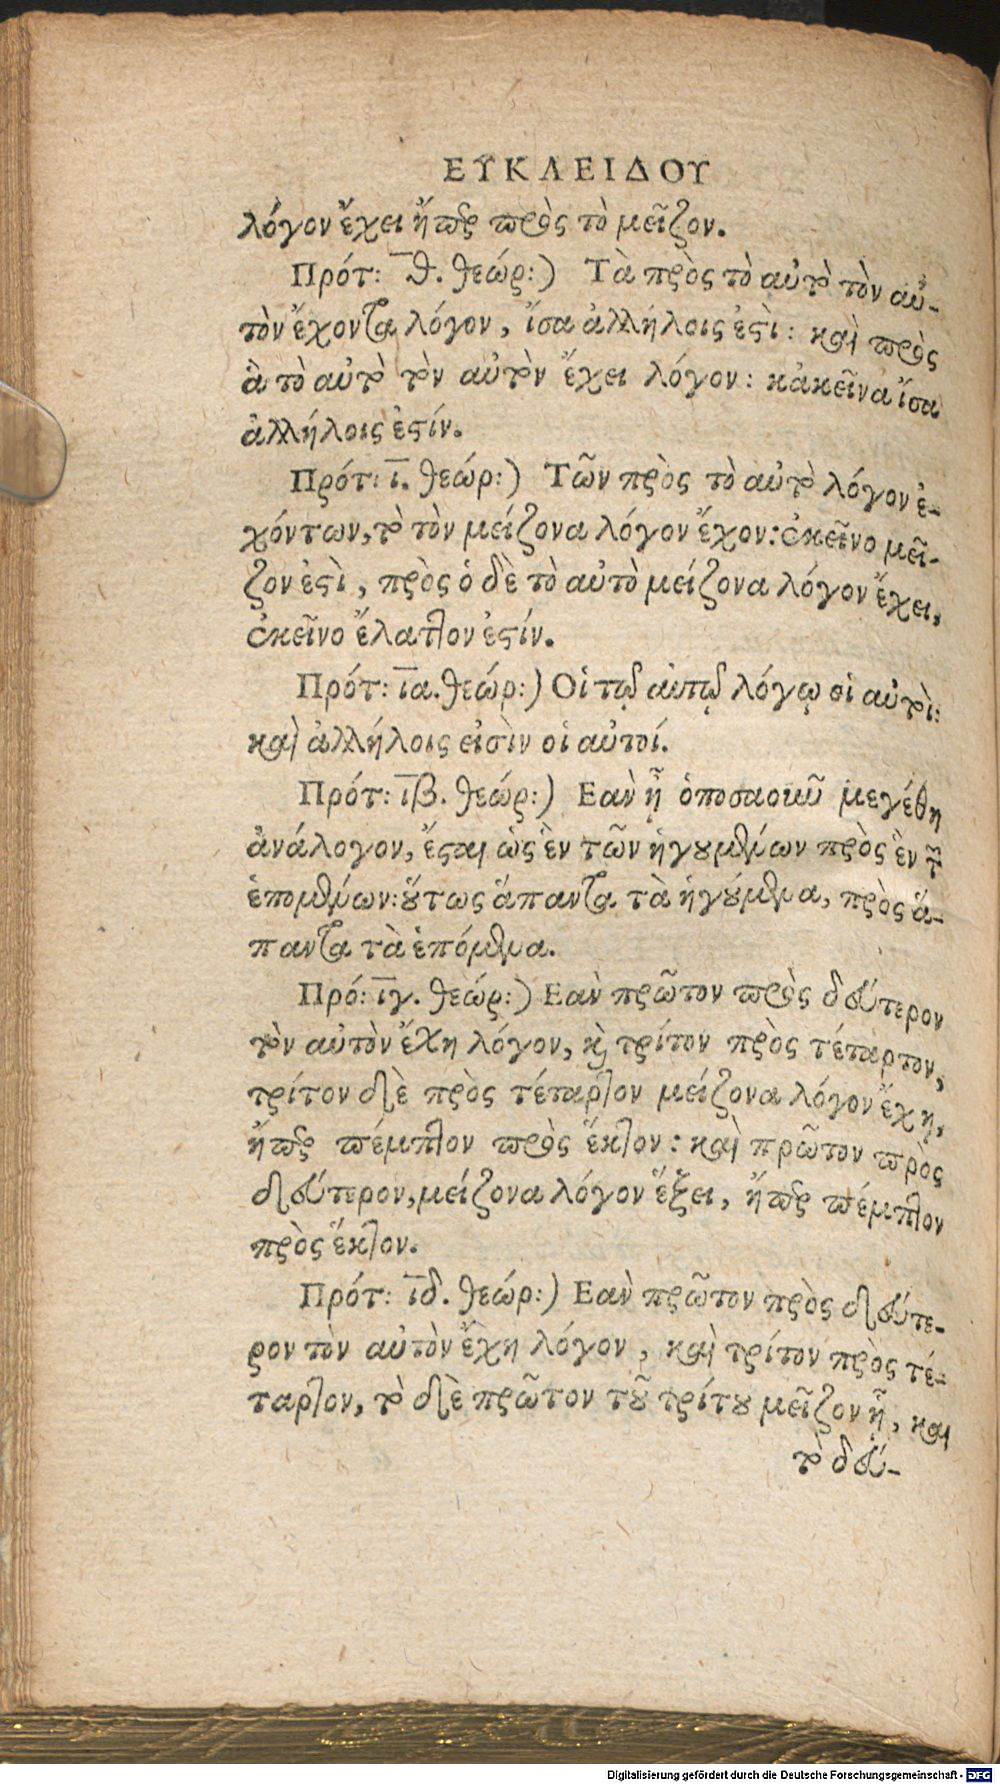 ΕΥΚΛΕΙΔΟΥ
λόγον ἔχει ἤπερ πρὸς τὸ μεῖζον.
Πρότ: θ. θεώρ:) Τὰ πρὸς τὸ αὐτὸ τὸν αὐ-
τὸν ἔχοντα λόγον, ἴσα ἀλλήλοις ἐστὶ: καὶ πρὸς
ἃ τὸ αὐτὸ τὸν αὐτὸν ἔχει λόγον: κἀκεῖνα ἴσα
ἀλλήλοις ἐστίν.
Πρότ: ι. θεώρ:) Τῶν πρὸς τὸ αὐτὸ λόγον ἐ-
χόντων, τὸ τὸν μείζονα λόγον ἔχον: ἐκεῖνο μεῖ-
ζον ἐστὶ, πρὸς ὁ δὲ τὸ αὐτὸ μείζονα λόγον ἔχει,
ἐκεῖνο ἔλαττον ἐστίν.
Πρότ: ια. θεώρ:) Οἱ τῷ αὐτῷ λόγῳ οἱ αὐτοὶ:
καὶ ἀλλήλοις εἰσὶν οἱ αὐτοί.
Πρότ: ιβ. θεώρ:) Εαν ᾖ ὁποσαοιοῦν μεγέθη
ἀνάλογον, ἔσται ὡς ἓν τῶν ἡγουμένων πρὸς ἓν τῶν
ἑπομένων: οὕτως ἅπαντα τὰ ἡγούμενα, πρὸς ἅ-
παντα τὰ ἑπόμενα.
Πρό: ιγ. θεώρ:) Εὰν πρῶτον πρὸς δεύτερον
τὸν αὐτὸν ἔχη λόγον, καὶ τρίτον πρὸς τέταρτον,
τρίτον δὲ πρὸς τέταρτον μείζονα λόγον ἔχη,
ἤπερ πέμπτον πρὸς ἕκτον: καὶ πρῶτον πρὸς
δεύτερον, μείζονα λόγον ἕξει, ἤπερ πέμπτον
πρὸς ἕκτον.
Πρότ: ιδ. θεώρ:) Εὰν πρῶτον πρὸς δεύτε-
ρον τὸν αὐτὸν ἔχη λόγον, καὶ τρίτον πρὸς τέ-
ταρτον, τὸ δὲ πρῶτον τοῦ τρίτου μεῖζον ᾖ, καὶ
τὸ δεύ-
Digitalisierung gefördert durch die Deutsche Forschungsgemeinschaft - DFG